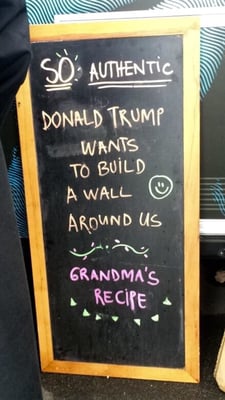 SO AUTHENTiC
DONALD TRUMP
WANTS
TO BUILD
A WALL
AROUND US
GRANDMA'S
RECIPE